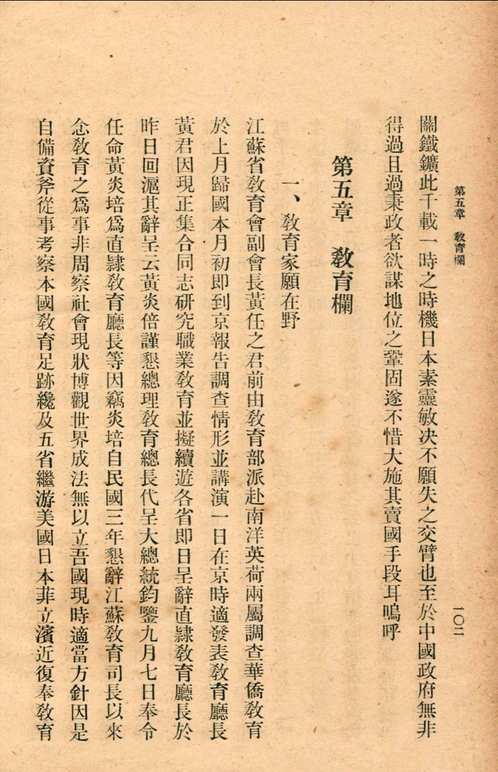 第五章　教育欄
一〇二
關鐵鑛此千載一時之時機日本素靈敏決不願失之交臂也至於中國政府無非
得過且過秉政者欲謀地位之鞏固遂不惜大施其賣國手段耳嗚呼
第五章　教育欄
一、教育家願在野
江蘇省教育會副會長黃任之君前由教育部派赴南洋英荷兩屬調查華僑教育
於上月歸國本月初即到京報告調查情形並講演一日在京時適發表教育廳長
黃君因現正集合同志研究職業教育並擬續遊各省即日呈辭直隸教育廳長於
昨日回滬其辭呈云黃炎倍謹懇總理教育總長代呈大總統鈞鑒九月七日奉令
任命黃炎培爲直隸教育廳長等因竊炎培自民國三年懇辭江蘇教育司長以來
念教育之爲事非周察社會現狀博觀世界成法無以立吾國現時適當方針因是
自備資斧從事考察本國教育足跡纔及五省繼游美國日本菲立濱近復奉教育